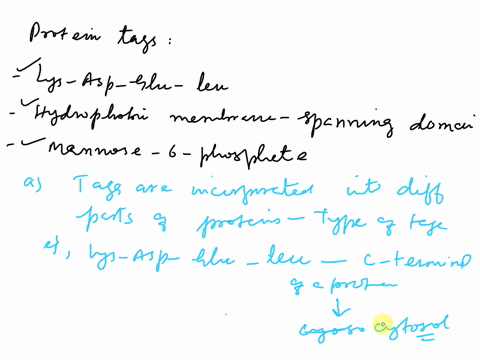 Protein tags :
- ✓ Lys-Asp-Glu-leu
- ✓ Hydrophobic membrane-spanning domain
- ✓ mannose-6-phosphate
a) Tags are incorporated into diff
parts of proteins - Type of tags
Lys-Asp-Glu-leu - C-terminal
of a protein
↓
cytosol